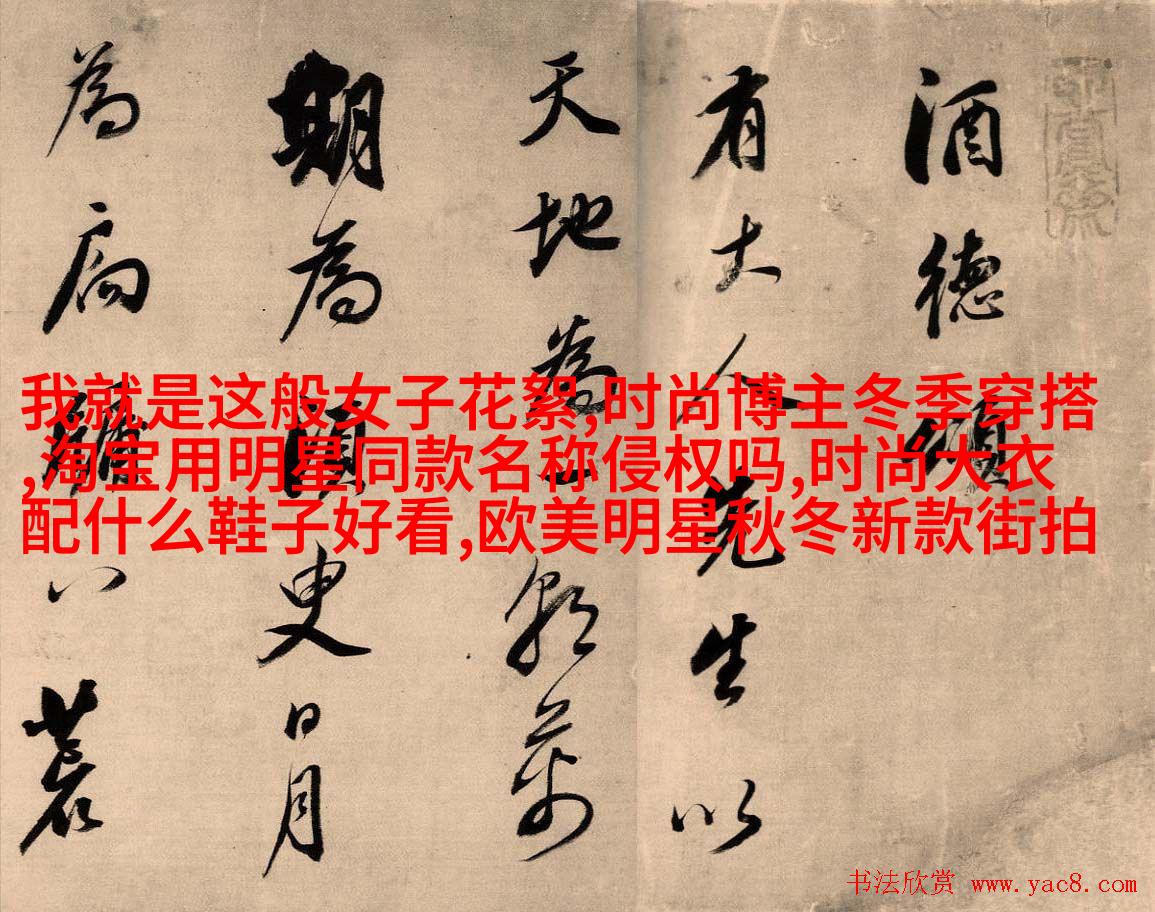 酒德頌
有大人先生以
天地為一朝萬
期為須臾日月
為扃牖八荒
我就是这般女子花絮,时尚博主冬季穿搭
,淘宝用明星同款名称侵权吗,时尚大衣
配什么鞋子好看,欧美明星秋冬新款街拍
书法欣赏 www.yac8.com